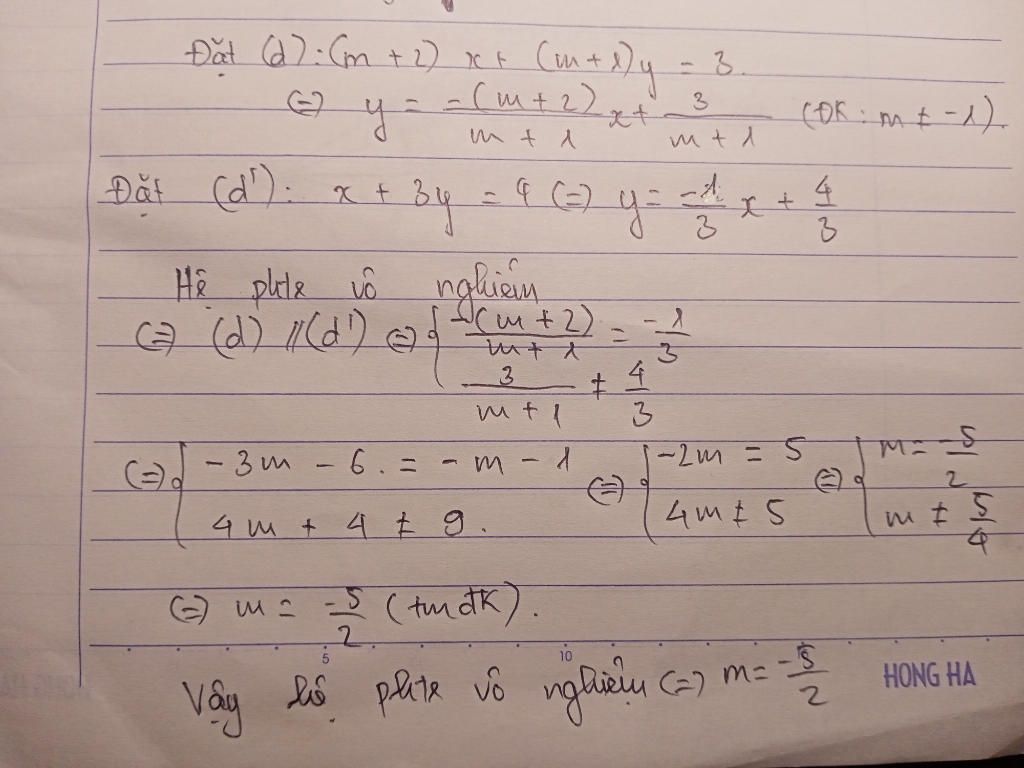 Đặt (d): (m + 2) x + (m + 1) y = 3.
(=) y = -(m + 2)/(m + 1) x + 3/(m + 1) (ĐK: m ≠ -1).
Đặt (d'): x + 3y = 4 (=) y = -1/3 x + 4/3
Hệ phtr vô nghiệm
(=) (d) // (d') (=) { -(m + 2)/(m + 1) = -1/3
3/(m + 1) ≠ 4/3
(=) { -3m - 6. = -m - 1 (=) { -2m = 5 (=) { m = -5/2
4m + 4 ≠ 9. 4m ≠ 5 m ≠ 5/4
(=) m = -5/2 (tmđK).
5 10
Vậy hệ phtr vô nghiệm (=) m = -5/2 HONG HA